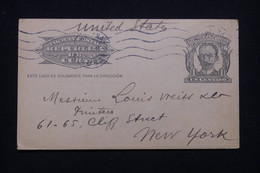 United States
REPUBLICA
DE CUBA
ESTE LADO ES SOLAMENTE PARA LA DIRECCIÓN
Messieurs Louis Weiss & Co
Printers
61-65, Cliff Street
New York